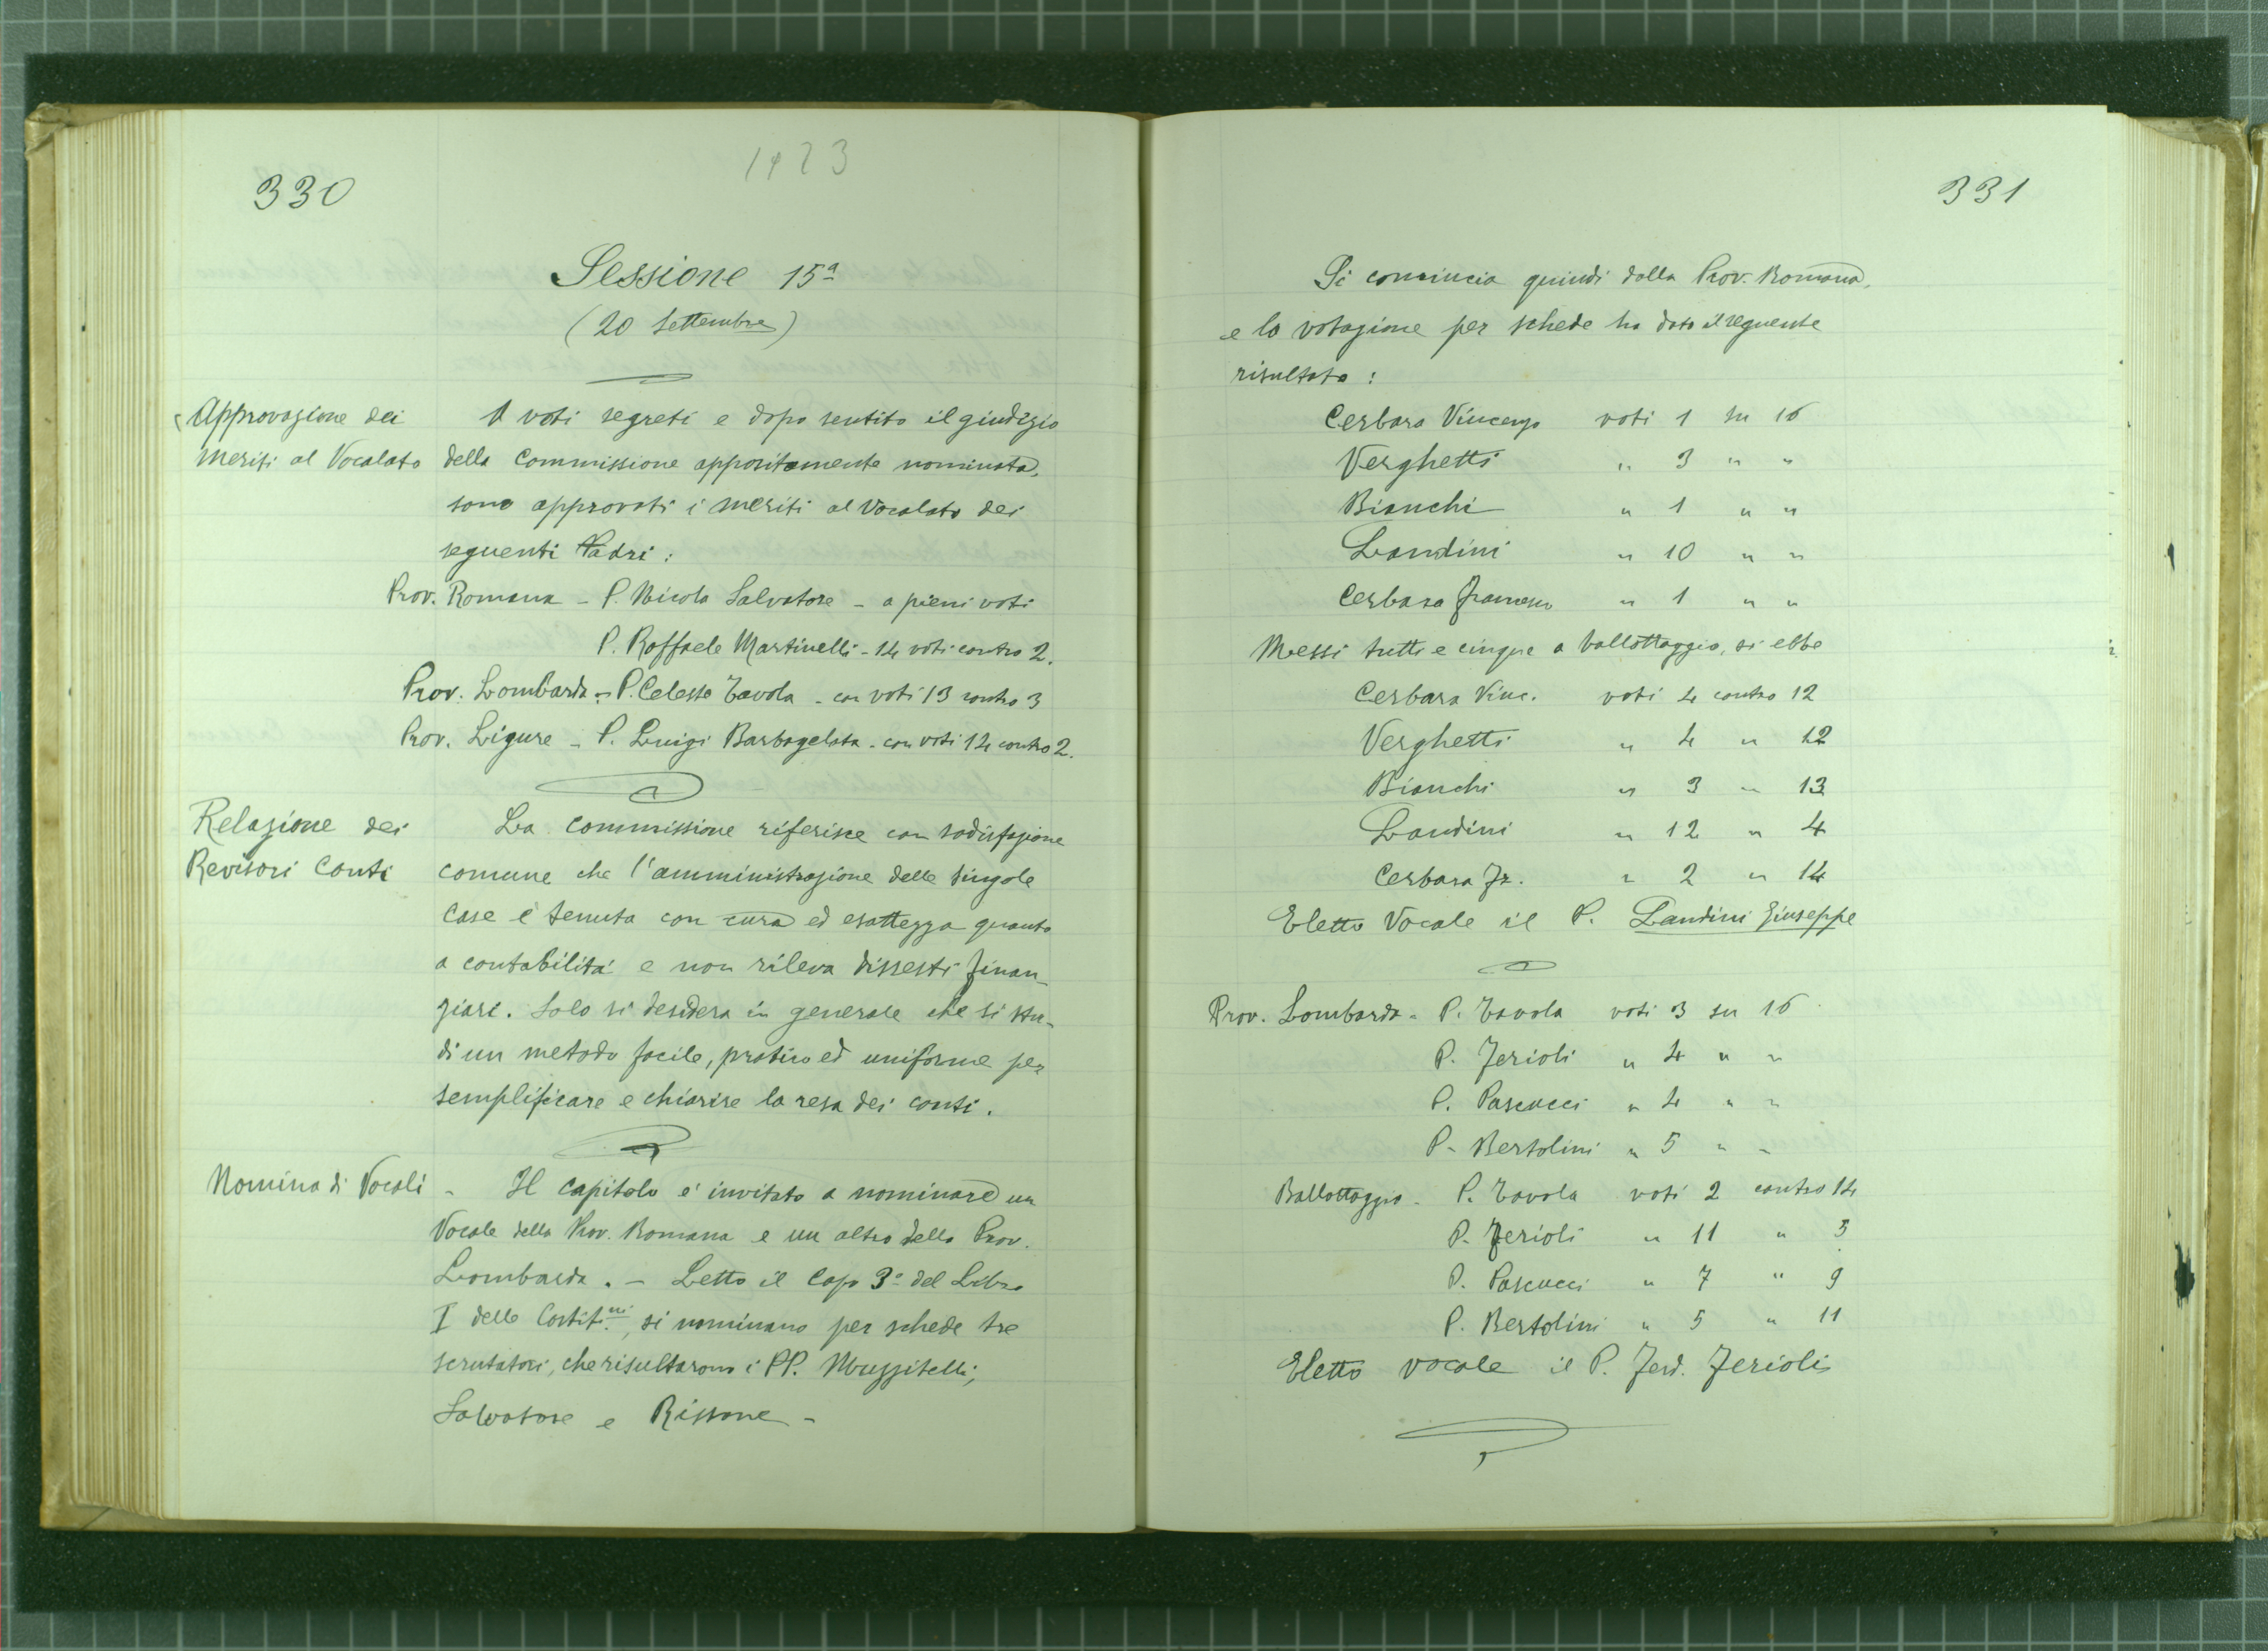 330
1923
Sessione 15ª
(20 Settembre)
Approvazione dei
meriti al Vocalato
A voti segreti e dopo sentito il giudizio
della Commissione appositamente nominata,
sono approvati i meriti al Vocalato dei
seguenti Padri:
Prov. Romana - P. Nicola Salvatore - a pieni voti
P. Raffaele Martinelli - 14 voti contro 2.
Prov. Lombarda - P. Celeste Tavola - con voti 13 contro 3
Prov. Ligure - P. Luigi Barbagelata - con voti 14 contro 2.
Relazione dei
Revisori Conti
La Commissione riferisce con sodisfazione
comune che l'amministrazione delle singole
Case è tenuta con cura ed esattezza quanto
a contabilità e non rileva dissesti finan-
ziari. Solo si desidera in generale che si stu-
di un metodo facile, pratico ed uniforme per
semplificare e chiarire la resa dei conti.
Nomina di Vocali - Il Capitolo è invitato a nominare un
Vocale della Prov. Romana e un altro della Prov.
Lombarda. - Letto il Capo 3º del Libro
I delle Costit.ni, si nominano per schede tre
scrutatori, che risultarono i PP. Muzzitelli,
Salvatore e Rissone -
331
Si comincia quindi dalla Prov. Romana,
e la votazione per schede ha dato il seguente
risultato:
Cerbara Vincenzo voti 1 su 16
Verghetti " 3 " "
Bianchi " 1 " "
Landini " 10 " "
Cerbara Francesco " 1 " "
Messi tutti e cinque a ballottaggio, si ebbe
Cerbara Vinc. voti 4 contro 12
Verghetti " 4 " 12
Bianchi " 3 " 13
Landini " 12 " 4
Cerbara Fr. " 2 " 14
Eletto Vocale il P. Landini Giuseppe
Prov. Lombarda - P. Tavola voti 3 su 16
P. Ferioli " 4 " "
P. Pascucci " 4 " "
P. Bertolini " 5 " "
Ballottaggio - P. Tavola voti 2 contro 14
P. Ferioli " 11 " 5
P. Pascucci " 7 " 9
P. Bertolini " 5 " 11
Eletto vocale il P. Ferd. Ferioli